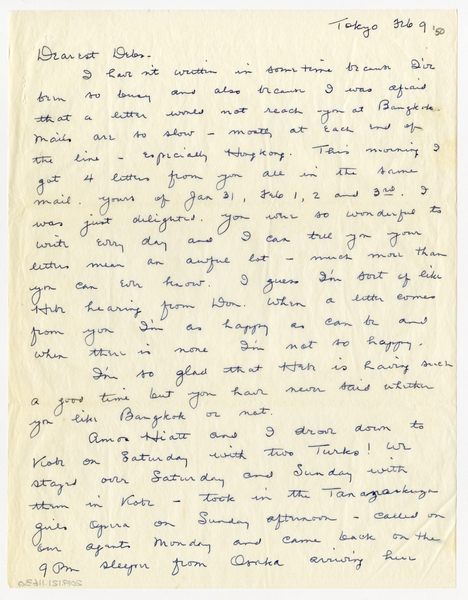 Tokyo Feb 9 '50
Dearest Debs -
I haven't written in some time because I've
been so busy and also because I was afraid
that a letter would not reach you at Bangkok.
Mails are so slow - mostly at each end of
the line - especially Hongkong. This morning I
got 4 letters from you all in the same
mail. yours of Jan 31, Feb 1, 2 and 3rd. I
was just delighted. you were so wonderful to
write every day and I can tell you your
letters mean an awful lot - much more than
you can ever know. I guess I'm sort of like
Heb hearing from Don. When a letter comes
from you I'm as happy as can be and
when there is none I'm not so happy.
I'm so glad that Heb is having such
a good time but you have never said whether
you like Bangkok or not.
Amos Hiatt and I drove down to
Kobe on Saturday with two Turks! We
stayed over Saturday and Sunday with
them in Kobe - took in the
girls Opera on Sunday afternoon - called on
our agents Monday and came back on the
9 PM sleeper from Osaka arriving here